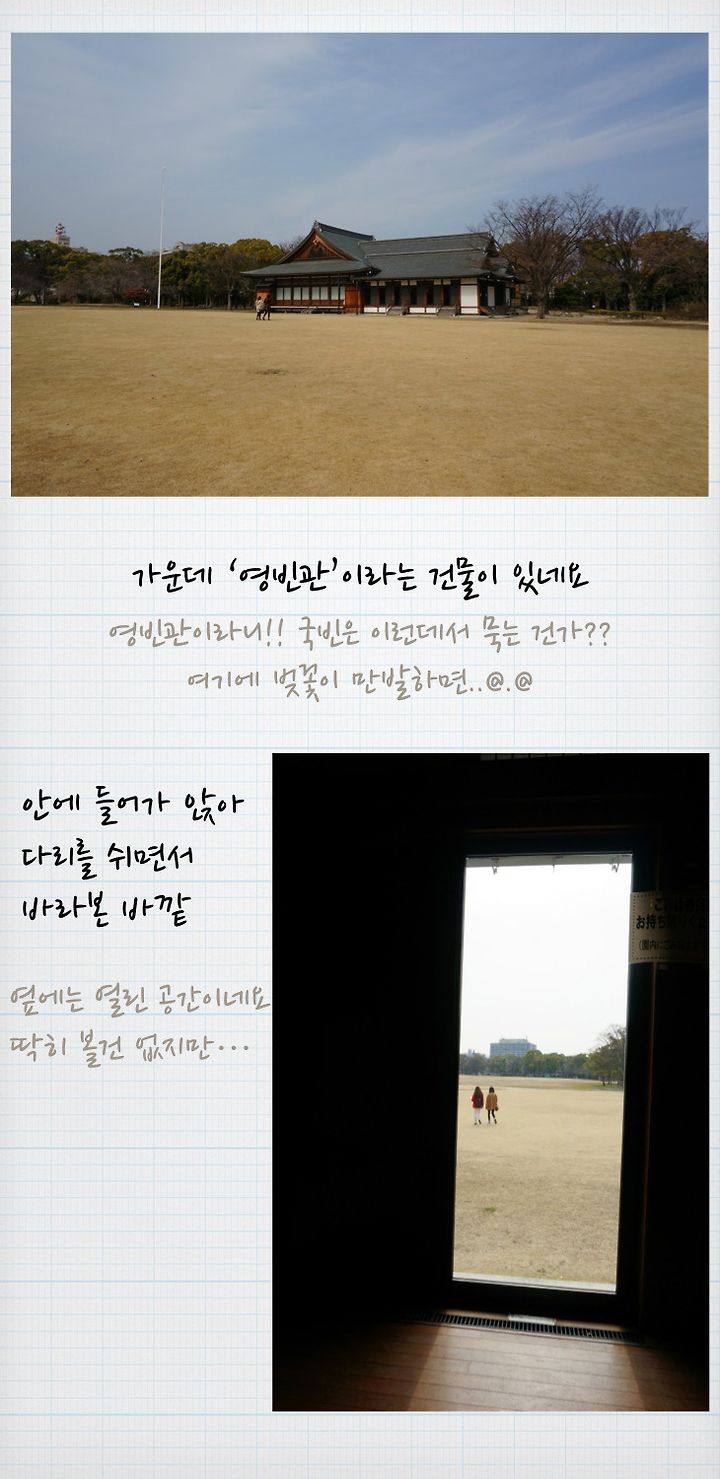 가운데 ‘영빈관’이라는 건물이 있네요
영빈관이라니!! 국빈은 이런데서 묵는 건가??
여기에 벚꽃이 만발하면..@.@
안에 들어가 앉아
다리를 쉬면서
바라본 바깥
옆에는 열린 공간이네요
딱히 볼건 없지만...
お持ち帰りく